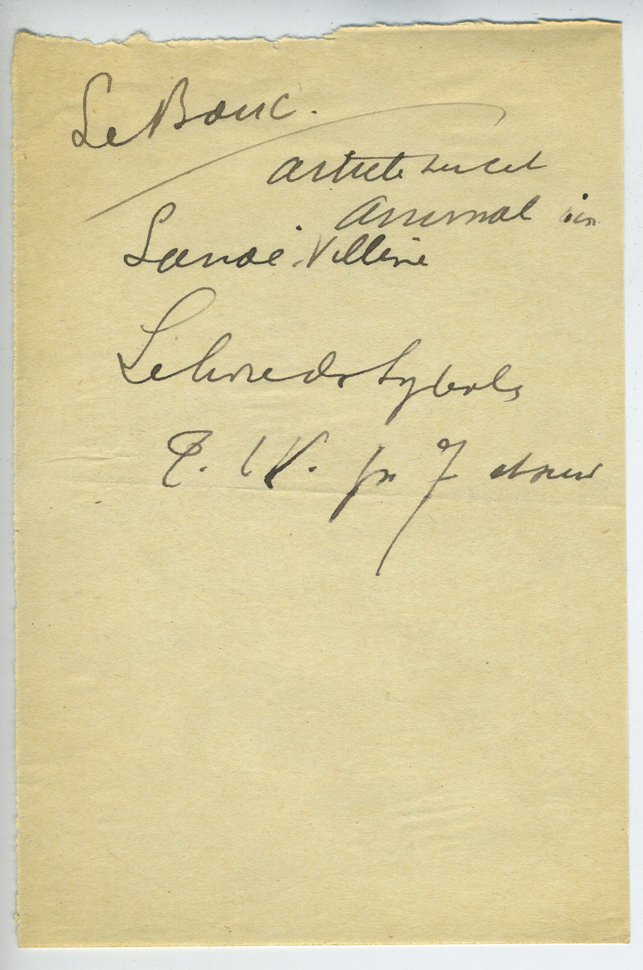 Le Bouc.
article sur cet
Animal in
Lanoë-Villène
Le livre des Symboles
T. IV. p. 7 et suiv